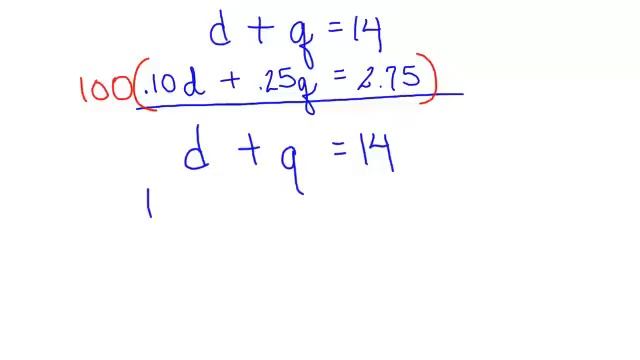 d + q = 14
100(.10d + .25q = 2.75)
d + q = 14
1